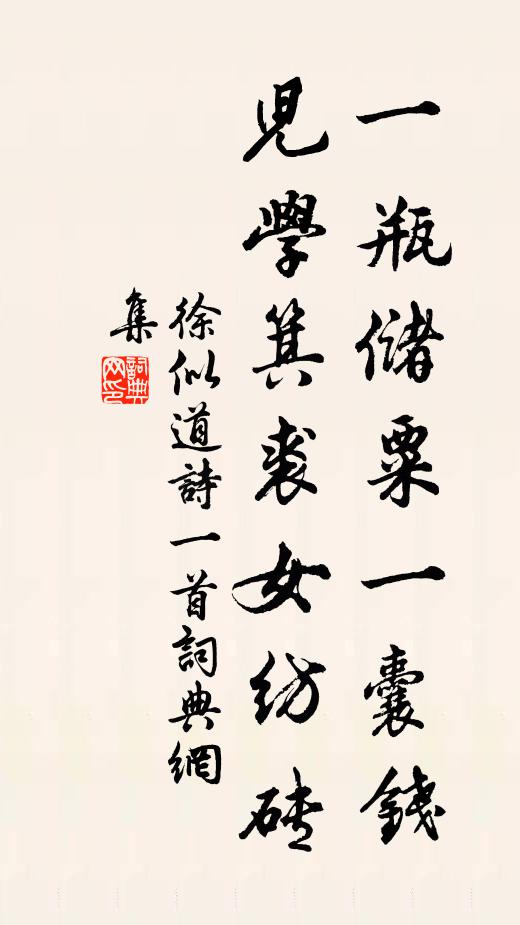 一瓶儲粟一囊錢
児學箕裘女紡砖
徐似道詩一首詞典網
集
詞典
网印